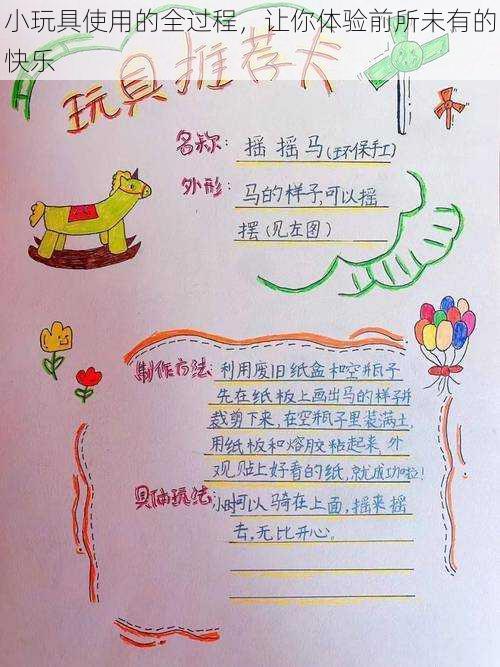 小玩具使用的全过程，让你体验前所未有的
快乐
玩具推荐卡
名称：摇摇马(环保手工)
外形：马的样子,可以摇
摆(见左图)
制作方法：利用废旧纸盒和空瓶子
先在纸板上画出马的样子并
裁剪下来，在空瓶子里装满土，
用纸板和熔胶粘起来,外
观贴上好看的纸,就成功啦!
具体玩法：小时可以骑在上面,摇来摇
去,无比开心。